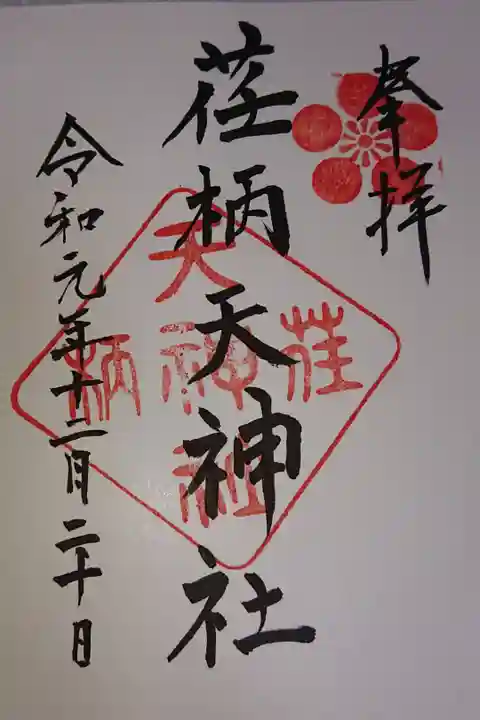 奉拝
荏柄天神社
令和元年十二月二十日
天
荏
神
柄
社